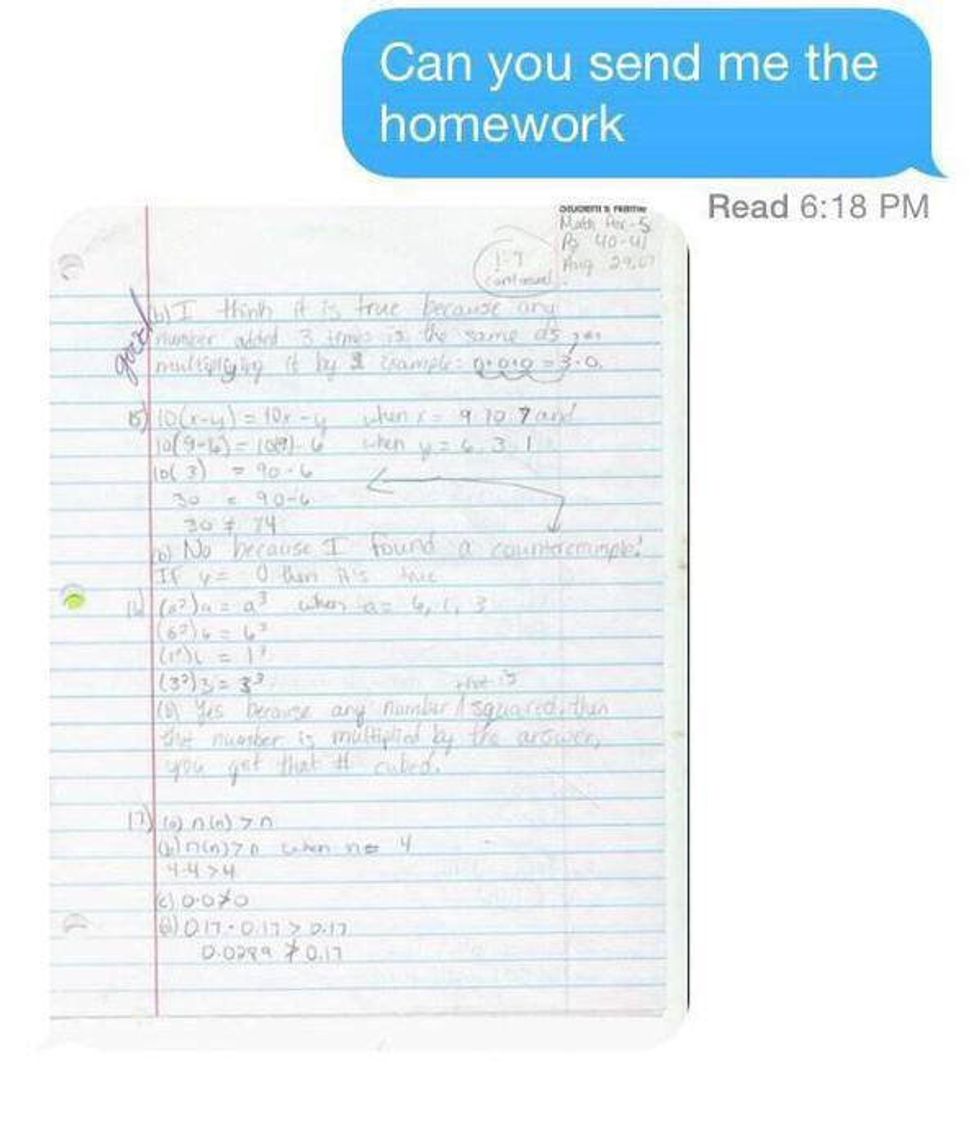 Can you send me the
homework
Read 6:18 PM
Student's Name
Math Per-5
Pg 40-41
Aug 29, 07
continued
good
b) I think it is true because any
number added 3 times is the same as
multiplying it by example: 0+0+0=3·0.
15) 10(x-y)=10x-y when x= 9 10 7 and
10(9-6)=10(9)-6 when y=6, 3, 1
10(3) = 90-6
30 = 90-6
30 ≠ 74
b) No because I found a counterexample!
If y= 0 then it's true
16) (a²)a = a³ when a= 6, 1, 3
(6²)6 = 6³
(1²)1 = 1³
(3²)3 = 3³
that is
(b) Yes because any number squared, then
the number is multiplied by the answer,
you get that # cubed.
17) (a) n(n) > n
(b) n(n)>n when n= 4
4·4>4
(c) 0·0≯0
(d) 0.17·0.17 > 0.17
0.0289 ≯ 0.17